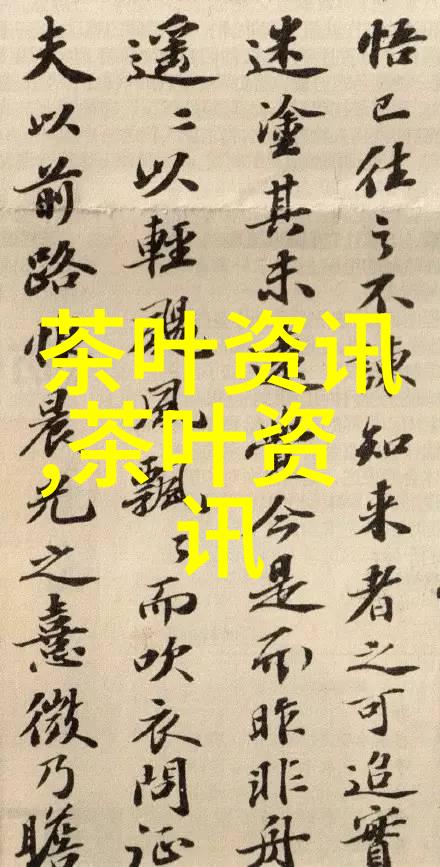 悟已往之不諫知来者之可追實
迷塗其未遠覺今是而昨非舟
遥〻以輕颺風飄〻而吹衣問征
夫以前路恨晨光之熹微乃瞻
茶叶资讯
,茶叶资
讯